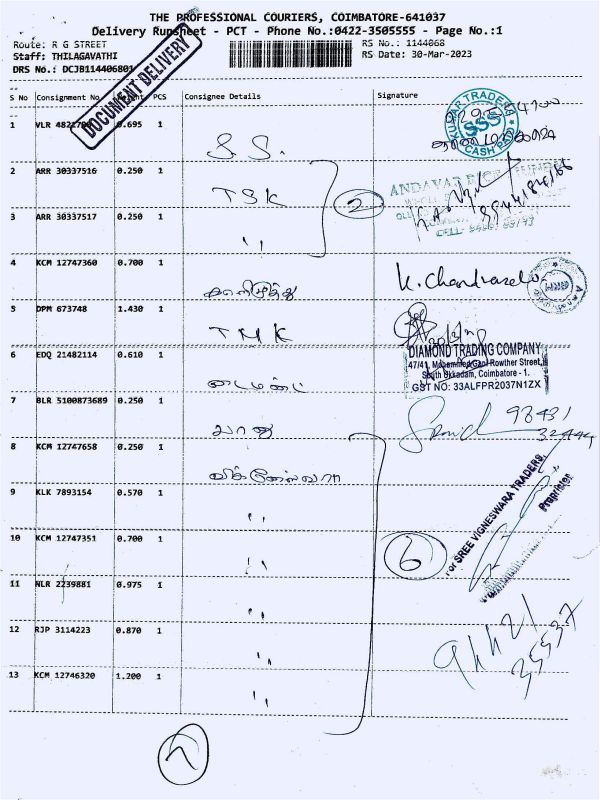 THE PROFESSIONAL COURIERS, COIMBATORE-641037
Delivery Runsheet - PCT - Phone No.:0422-3505555 - Page No.:1
Route: R G STREET
RS No.: 1144068
Staff: THILAGAVATHI
RS Date: 30-Mar-2023
DRS No.: DCJB114406801
DOCUMENT DELIVERY
S No Consignment No PCS Consignee Details Signature
1 VLR 0.695 1 S.S.
KUMAR TRADERS
SSS
CASH PAID
2 ARR 30337516 0.250 1 TSK
2
ANDAVAR
3 ARR 30337517 0.250 1 "
4 KCM 12747360 0.700 1
K. Chandrasek
5 DPM 673748 1.430 1 TMK
6 EDQ 21482114 0.610 1 டைமண்ட்
DIAMOND TRADING COMPANY
47/41, Mohammed Gani Rowther Street,
South Ukkadam, Coimbatore - 1.
GST NO: 33ALFPR2037N1ZX
7 BLR 5100873689 0.250 1 பாலு
98431
32444
8 KCM 12747658 0.250 1
9 KLK 7893154 0.570 1 "
For SREE VIGNESWARA TRADERS,
Proprietor
10 KCM 12747351 0.700 1 "
6
11 NLR 2239881 0.975 1 "
12 RJP 3114223 0.870 1 "
94421
35537
13 KCM 12746320 1.200 1 "
7